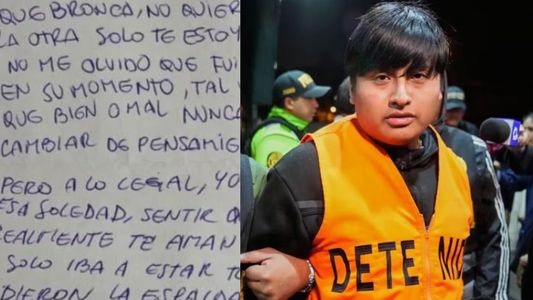 QUE BRONCA, NO QUIER
LA OTRA SOLO TE ESTOY
NO ME OLVIDO QUE FUI
EN SU MOMENTO, TAL
QUE BIEN O MAL NUNCA
CAMBIAR DE PENSAMIE
PERO A LO LEGAL, YO
ESA SOLEDAD, SENTIR Q
REALMENTE TE AMAN
SOLO IBA A ESTAR T
DIERON LA ESPALDA
DETENID